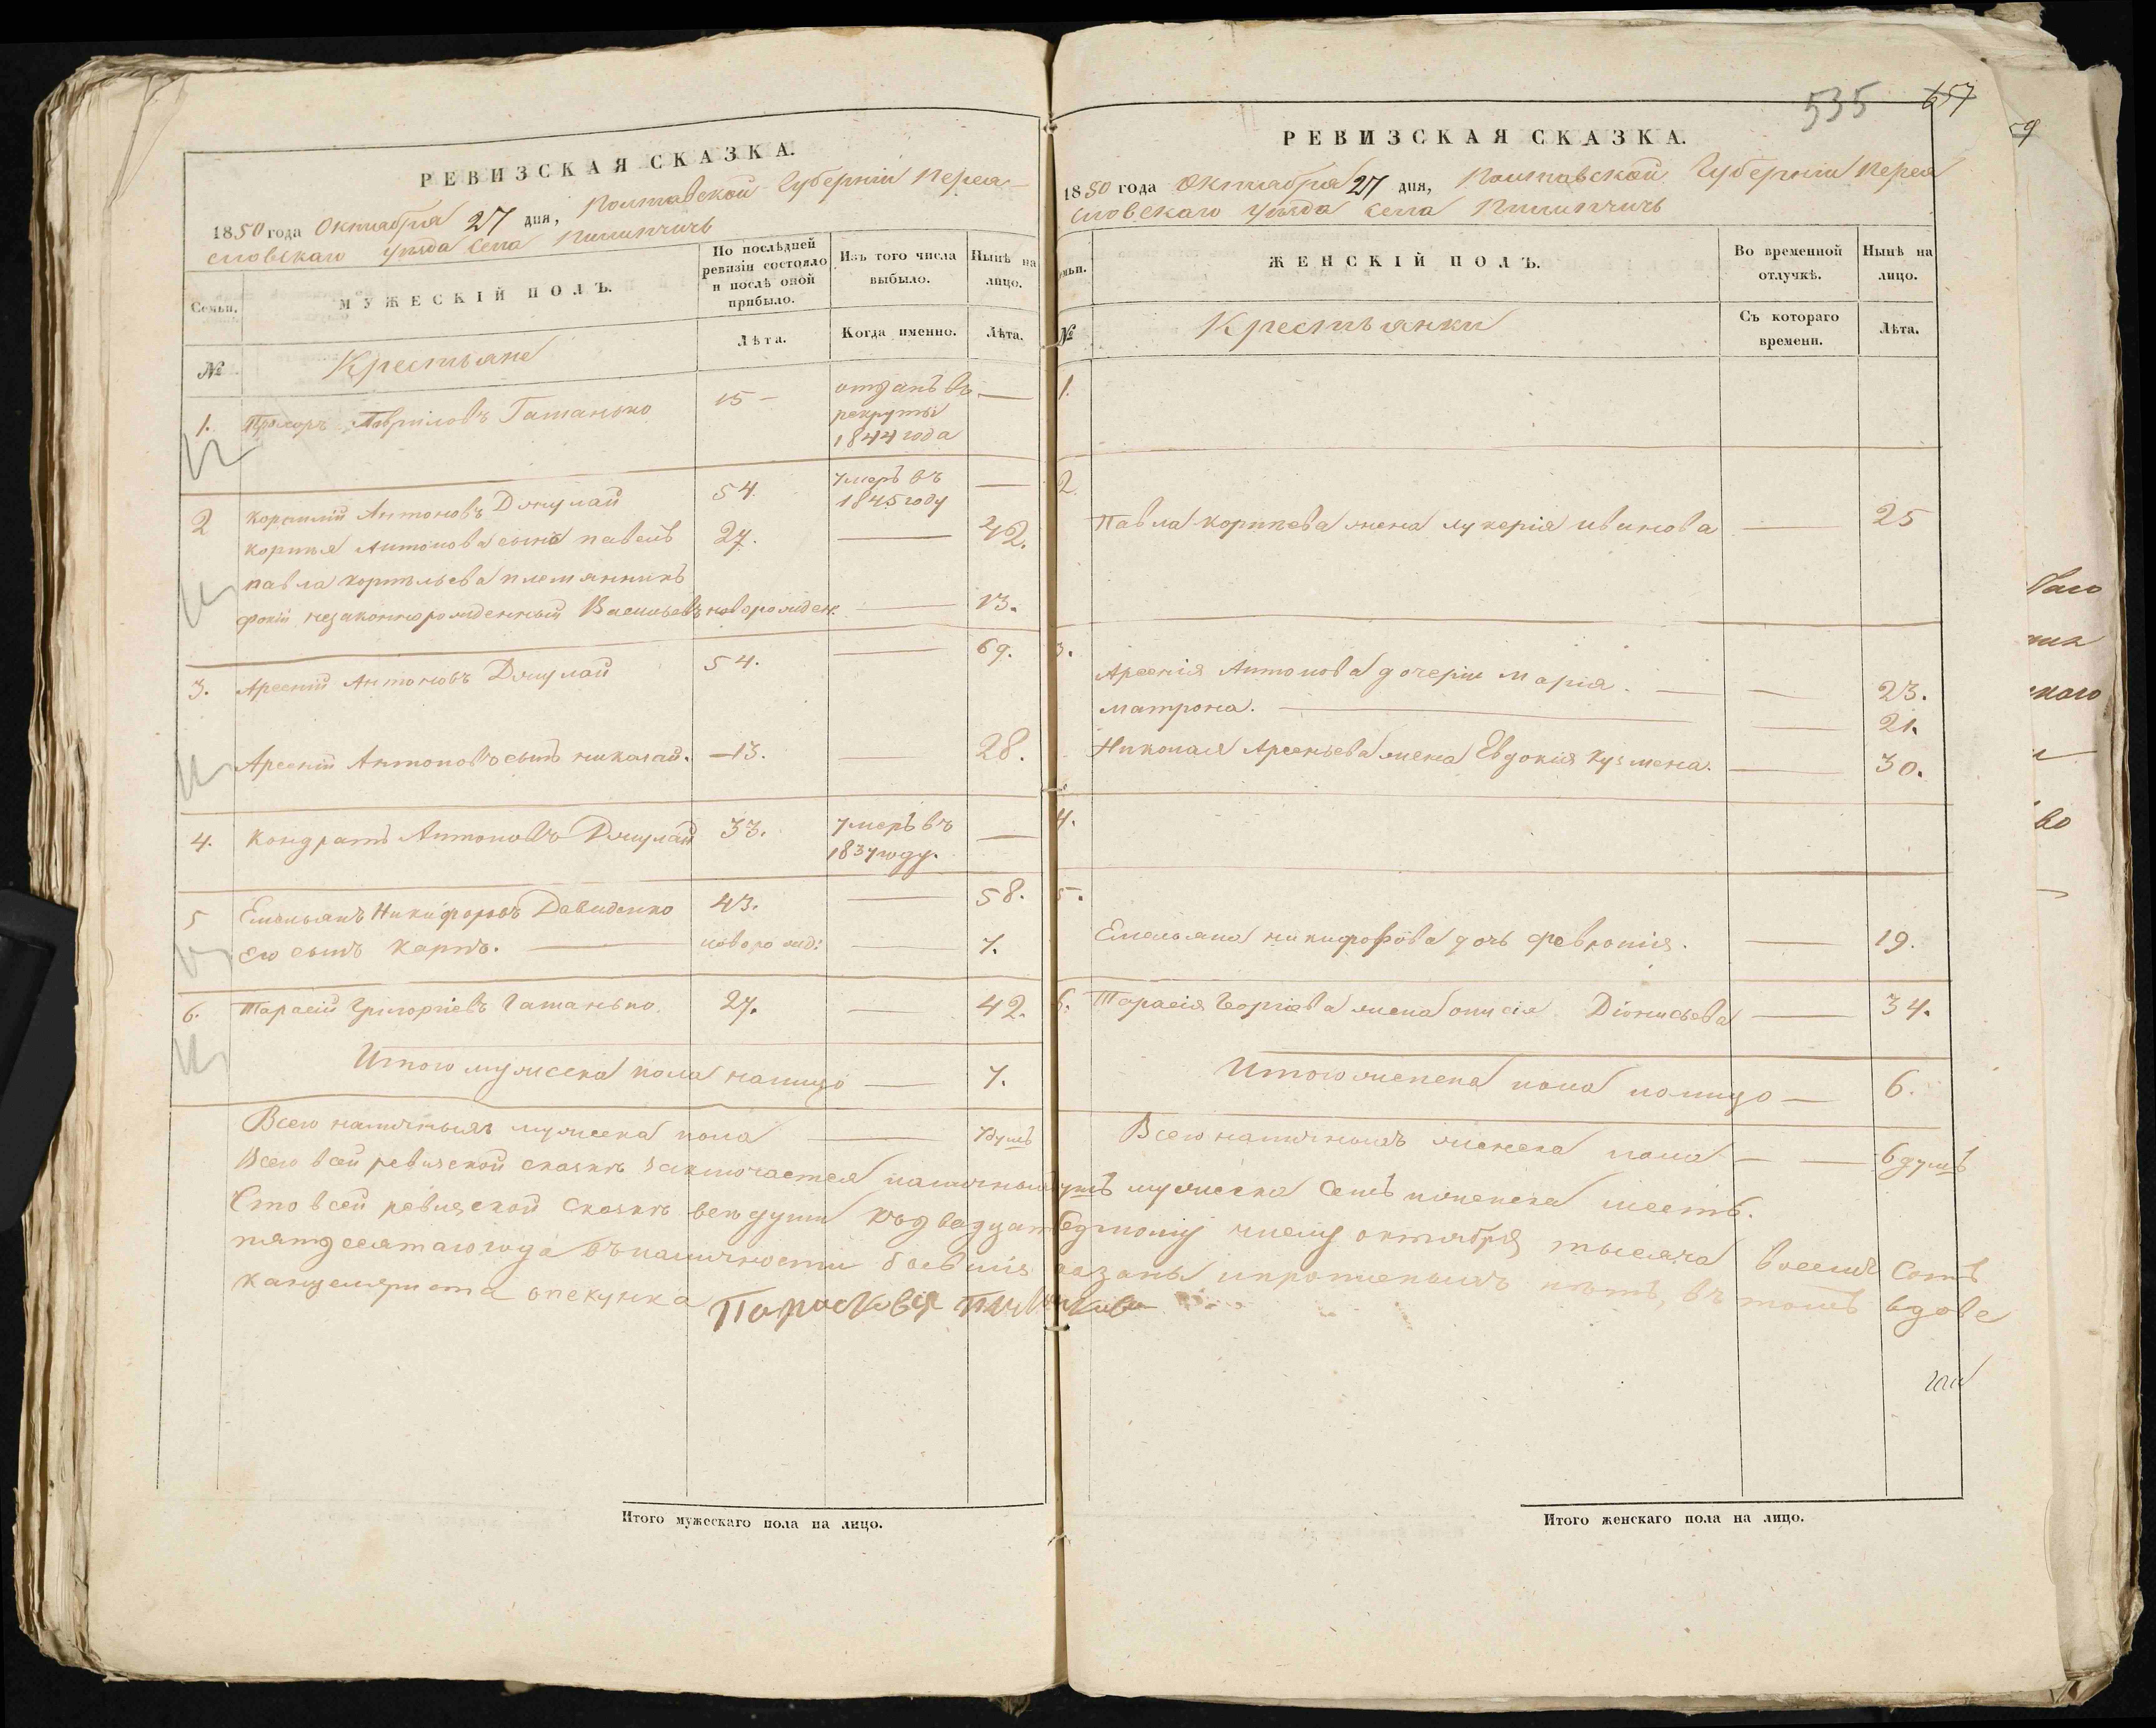 РЕВИЗСКАЯ СКАЗКА.
1850 года Октября 27 дня, Полтавской Губернiи Перея-
словскаго уѣзда села
Семьи.
МУЖЕСКІЙ ПОЛЪ.
По послѣдней ревизіи состояло и послѣ оной прибыло.
Изъ того числа выбыло.
Нынѣ на лицо.
№
Крестьяне
Лѣта.
Когда именно.
Лѣта.
1. Прохоръ Гавриловъ Гатанько 15 — отданъ въ —
рекруты
1844 года
2 Корнилiй Антоновъ Джулай 54. умеръ въ —
1845 году
Корнья Антонова сынъ павелъ 27. — 42.
павла корнильева племянникъ
фокiй незаконнорожденный Васильевъ новорожден. — 13.
3. Арсенiй Антоновъ Джулай 54. — 69.
Арсенiй Антоновъ сынъ николай. —13. — 28.
4. Кондратъ Антоновъ Джулай 33. умеръ въ —
1837 году.
5 Емельянъ Никифоровъ Давиденко 43. — 58.
его сынъ Карпъ. — новорожд: — 7.
6. Тарасiй Григорiевъ Гатанько. 27. — 42.
Итого мужеска пола налицо — 7.
Всего наличныхъ мужеска пола — 7 душъ
535 657
РЕВИЗСКАЯ СКАЗКА.
1850 года Октября 27 дня, Полтавской Губернiи Перея
словскаго уѣзда села
Семьи.
ЖЕНСКІЙ ПОЛЪ.
Во временной отлучкѣ.
Нынѣ на лицо.
№
Крестьянки
Съ котораго времени.
Лѣта.
1.
2.
Павла корнѣева жена лукерiя иванова — 25
3.
Арсенiя Антонова дочери Марiя. — — 23.
матрона. — — 21.
Николая Арсеньева жена Евдокiя Кузмена. — 30.
4.
5.
Емельяна никифорова дочь феврония. — 19.
6. Тарасiя Георгiева жена Дiонисьева — 34.
Итого женска пола налицо — 6.
Всего наличныхъ женска пола — — 6 душъ
Всего всей ревизской сказкѣ заключается наличныхъ душъ мужеска семь и женска шесть.
Что в сей ревизской сказкѣ всѣ души къ двадцать седьмому числу октября тысяча восемъ сотъ
пятдесятаго года въ наличности бывшiя показаны и прописныхъ нѣтъ, въ томъ вдова
канцеляриста опекунка Парасковiя
Итого мужескаго пола на лицо.
Итого женскаго пола на лицо.